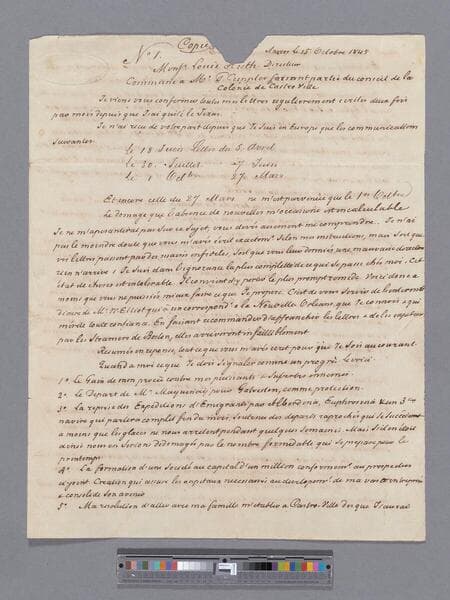 No 1.
Copie
15 Octobre 1845
Monsr Louis Huth Directeur
Commune à Mr T. Kuppler faisant partie du conseil de la
Colonie de Castro Ville
Je viens vous confirmer toutes mes lettres regulierement écrites deux fois
par mois depuis que j'ai quitté le Texas.
Je n'ai reçu de votre part depuis que Je suis en Europe que les communications
suivantes
Le 18 Juin lettre du 5 Avril
Le 30 Juillet 27 Juin
Le 1 Octbre 27 Mars
Et encore celle du 27 Mars ne m'est parvenue que le 1er Octbre
Le domage que l'absence de nouvelles m'occasione est incalculable
Je ne m'apesantirai pas sur ce sujet, vous devez aisement me comprendre. Je n'ai
pas le moindre doute que vous m'avez écrit exactemt selon mes instructions, mais soit que
vos lettres passent par des mains infideles, soit que vous leur donniez une mauvaise direction
rien n'arrive & Je suis dans l'ignorance la plus complette de ce qui se passe chez moi. Cet
état de choses est intolerable. Il convient d'y porter le plus prompt remede. Voici donc à
moins que vous ne puissiez mieux faire ce que Je propose. C'est de vous servir de
de Mr Elliot qui a un correspondt à la Nouvelle Orleans, que Je connais & qui
mérite toute confiance. En faisant recommander d'affranchir les lettres & de les expedier
par les Steamers de Boston, elles arriveront infailliblement
Resumez en reponse tout ce que vous m'avez écrit pour que Je sois au courant.
Quant à moi ce que Je dois signaler comme un progrès le voici
1o Le Gain de mon procès contre mes puissants & superbes ennemis.
2o Le depart de Mr pour Galveston, comme protection.
3o La reprise des Expeditions d'Emigrants par Alberdina, Euphrosina & un 3me
navire qui partira complet fin du mois, soutenue des departs raprochés qui se succederont
à moins que les glaces ne nous arretent pendant quelques semaines. Mais si il en était
ainsi nous en serions dédomagés par le nombre formidable qui se prepare pour le
printemps
4o La formation d'une Société au capital d'un million conformemt au prospectus
ci-joint Creation qui assure les capitaux necessaires au developpemt de ma vaste entreprise
& consolide son avenir
5o Ma resolution d'aller avec ma famille m'etablir à Castro-Ville dès que J'aurai